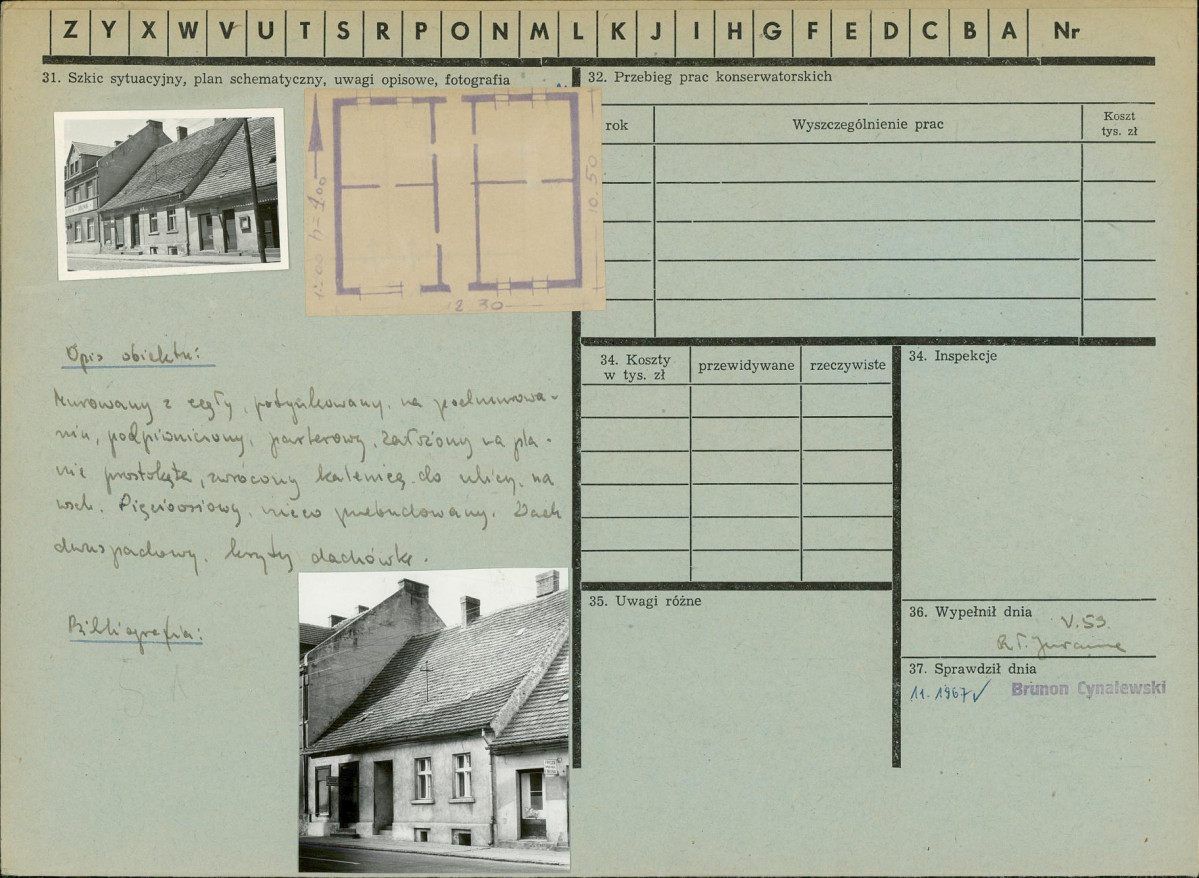 Z Y X W V U T S R P O N M L K J I H G F E D C B A Nr
31. Szkic sytuacyjny, plan schematyczny, uwagi opisowe, fotografia
12.30
10.50
Opis obiektu:
Murowany z cegły, potynkowany, na podmurowa-
niu, podpiwniczony, parterowy. Założony na pla-
nie prostokąta, zwrócony kalenicą do ulicy, na
wsch. Pięcioosiowy, nieco przebudowany. Dach
dwuspadowy, kryty dachówką.
Bibliografia:
32. Przebieg prac konserwatorskich
rok
Wyszczególnienie prac
Koszt
tys. zł
34. Koszty
w tys. zł
przewidywane
rzeczywiste
34. Inspekcje
35. Uwagi różne
36. Wypełnił dnia
V. 59.
37. Sprawdził dnia
11. 1967
Brunon Cynalewski